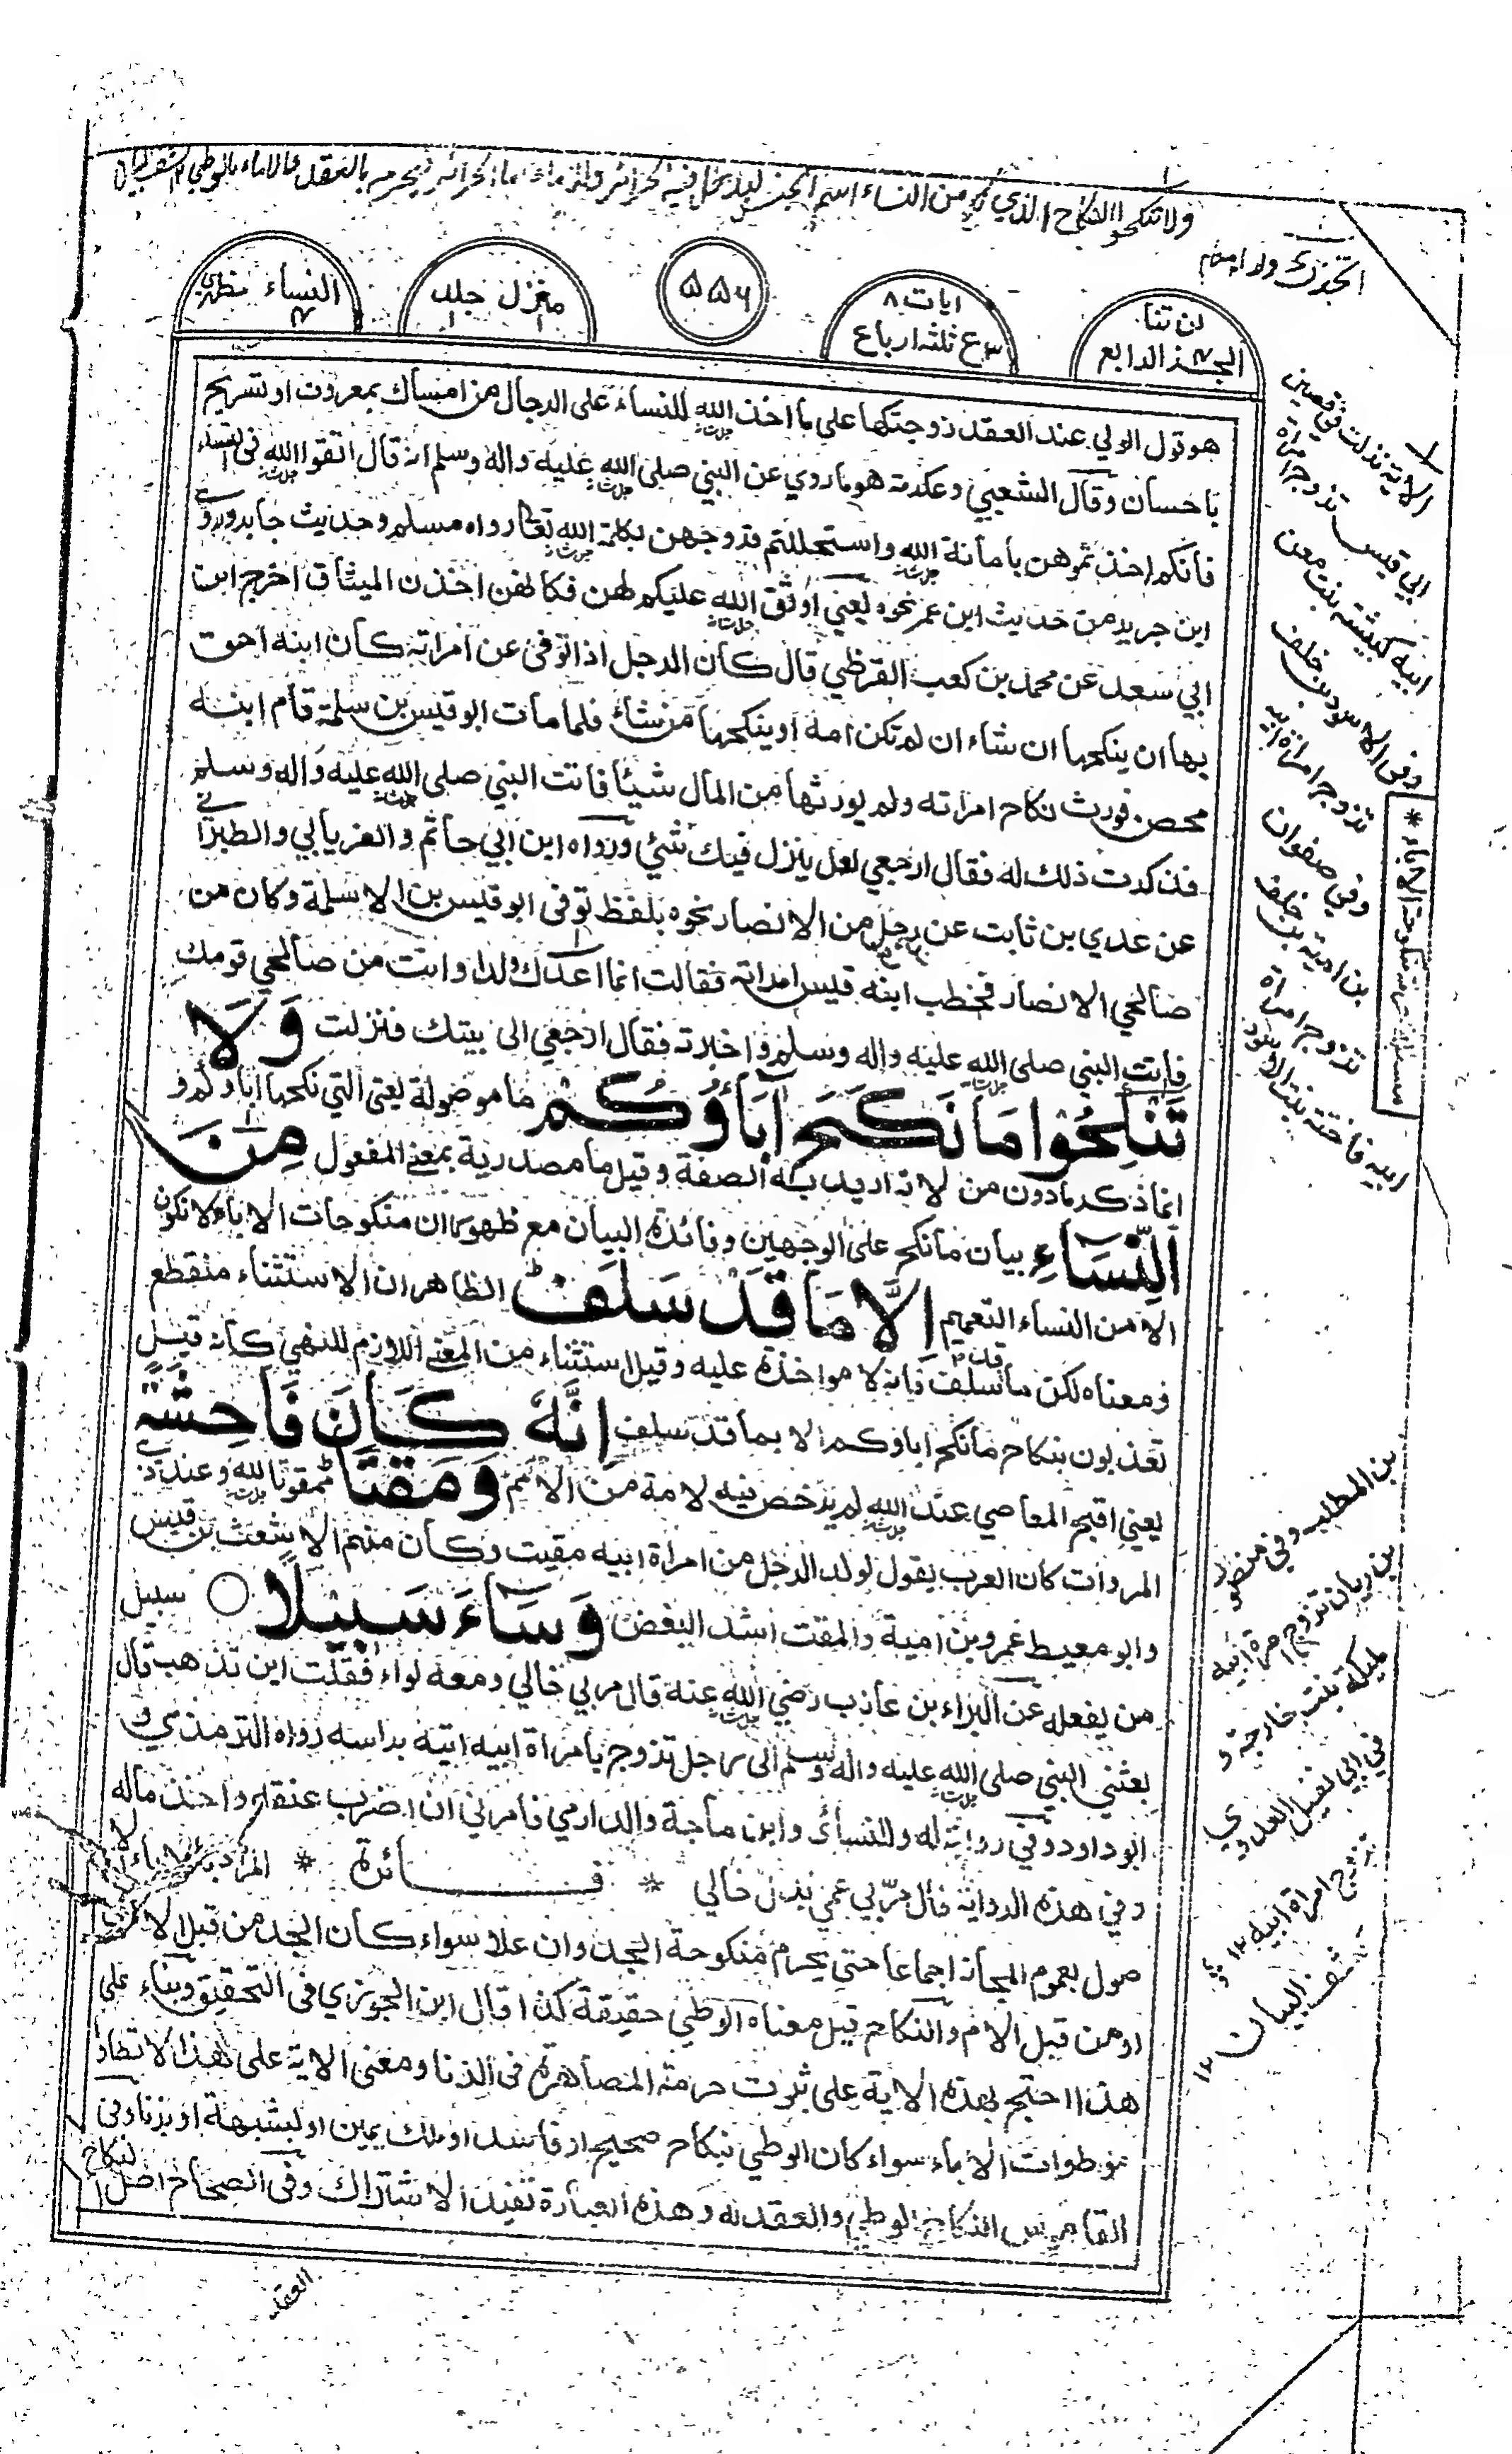 ولا تنكحوا النكاح الذي ذكر من النساء اسم الجنس ليدخل فيه الحرائر والاماء اما الحرائر فيحرم بالعقد
لن تنا
الجزء الرابع
ايات ٨
ع ثلثة ارباع
۵۵۶
منزل جلد
النساء مظهري
هو قول الولي عند العقد زوجتكها على ما اخذ الله للنساء على الرجال من امساك بمعروف او تسريح
باحسان وقال الشعبي وعكرمة هو ما روي عن النبي صلى الله عليه واله وسلم انه قال اتقوا الله في النساء
فانكم اخذتموهن بامانة الله واستحللتم فروجهن بكلمة الله تعالى رواه مسلم وحديث جابر وروى
ابن جرير من حديث ابن عمر نحوه يعني اوثق الله عليكم لهن فكانهن اخذن الميثاق اخرج ابن
ابي سعد عن محمد بن كعب القرظي قال كان الرجل اذا توفى عن امراته كان ابنه احق
بها ان ينكحها ان شاء ان لم تكن امه او ينكحها من شاء فلما مات ابو قيس بن سلمة قام ابنه
محصن فورث نكاح امراته ولم يورثها من المال شيئا فاتت النبي صلى الله عليه واله وسلم
فذكرت ذلك له فقال ارجعي لعل ينزل فيك شئ ورواه ابن ابي حاتم والفريابي والطبراني
عن عدي بن ثابت عن رجل من الانصار نحوه بلفظ توفى ابو قيس بن الاسلمة وكان من
صالحي الانصار فخطب ابنه قيس امراته فقالت انما اعدك ولدا وانت من صالحي قومك
فاتت النبي صلى الله عليه واله وسلم واخبرته فقال ارجعي الى بيتك فنزلت وَلَا
تَنْكِحُوْا مَا نَكَحَ آبَاؤُكُمْ ما موصولة يعني التي نكحها اباؤكم و
انما ذكر ما دون من لانه اريد به الصفة وقيل ما مصدرية بمعنى المفعول مِنَ
النِّسَاءِ بيان ما نكح على الوجهين وفائدة البيان مع ظهور ان منكوحات الاباء لا تكون
الا من النساء التعميم اِلَّا مَا قَدْ سَلَفَ ط الظاهر ان الاستثناء منقطع
ومعناه لكن ما قد سلف فانه لا مواخذة عليه وقيل استثناء من المعنى اللازم للنهي كانه قيل
تعذبون بنكاح ما نكح اباؤكم الا بما قد سلف اِنَّهٗ كَانَ فَاحِشَةً
يعني اقبح المعاصي عند الله لم يرخص فيه لامة من الامم وَمَقْتًا ط ممقوتا لله وعند ذي
المروات كان العرب يقول لولد الرجل من امراة ابيه مقيت وكان منهم الاشعث بن قيس
وابو معيط عمرو بن امية والمقت اشد البغض وَسَاءَ سَبِيْلًا ○ سبيل
من يفعله عن البراء بن عازب رضي الله عنه قال مر بي خالي ومعه لواء فقلت اين تذهب قال
بعثني النبي صلى الله عليه واله وسلم الى رجل تزوج بامراة ابيه اتيه براسه رواه الترمذي و
ابو داود وفي رواية له وللنسائى وابن ماجة والدارمي فامرني ان اضرب عنقه واخذ ماله
وفي هذه الرواية قال مر بي عمي بدل خالي * فائدة * المراد بالاباء الا
صول بعموم المجاز اجماعا حتى يحرم منكوحة الجد وان علا سواء كان الجد من قبل الاب
او من قبل الام والنكاح قيل معناه الوطي حقيقة كذا قال ابن الجوزي في التحقيق وبناء على
هذا احتج بهذه الاية على ثبوت حرمة المصاهرة في الزنا ومعنى الاية على هذا لا تطاوا
موطوات الاباء سواء كان الوطي نكاح صحيح او فاسد او ملك يمين او لبشبهة او بزنا وفي
القاموس النكاح الوطي والعقد له وهذه العبارة تفيد الاشتراك وفي الصحاح اصل النكاح
العقد
الاية نزلت في حصين
ابي قيس تزوج امراة
ابيه كبيشة بنت معن
وفي الاسود بن خلف
تزوج امراة ابيه
وفي صفوان
بن امية بن خلف
تزوج امراة
ابيه فاختة بنت الاسود
بن المطلب وفي منصور
بن ريان تزوج امراة ابيه
مليكة بنت خارجة و
في ابي نفيل العدوي
تزوج امراة ابيه ١٢